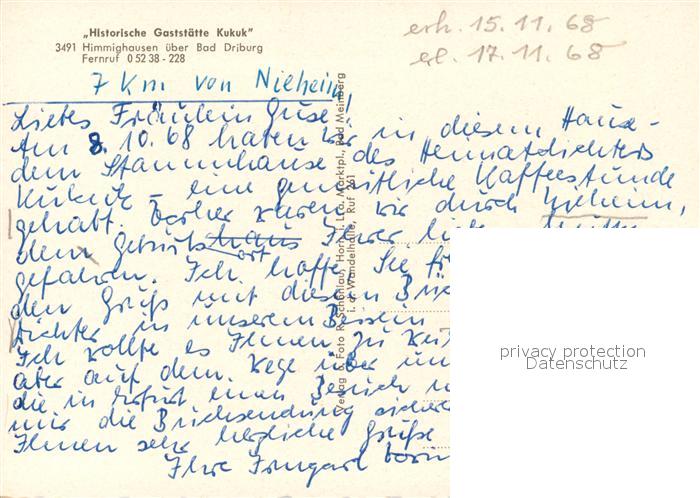 „Historische Gaststätte Kukuk"
3491 Himmighausen über Bad Driburg
Fernruf 0 52 38 - 228
erh. 15.11.68
el. 17.11.68
7 Km von Nieheim
Liebes Fräulein Guse!
Am 8.10.68 haben wir in diesem Hause -
dem Stammhause des Heimatdichters
Kukuk - eine gemütliche Kaffeestunde
gehabt. Vorher waren wir durch Nieheim,
dem Geburtshaus ort Ihrer lieben Mutter
gefahren. Ich hoffe, Sie
den Gruß mit diesem
Dichter in unserem Besein
Ich wollte es Ihnen zu
aber auf dem Wege über
die in Erfurt einen Besuch
mir die Buchsendung
Ihnen sehr herzliche Grüße
Ihre Irmgard
Verlag u. Foto R. Schönlau, Horn i. Li., Marktpl., Bad Meinberg
i. d. Wandelhalle, Ruf 261
privacy protection
Datenschutz